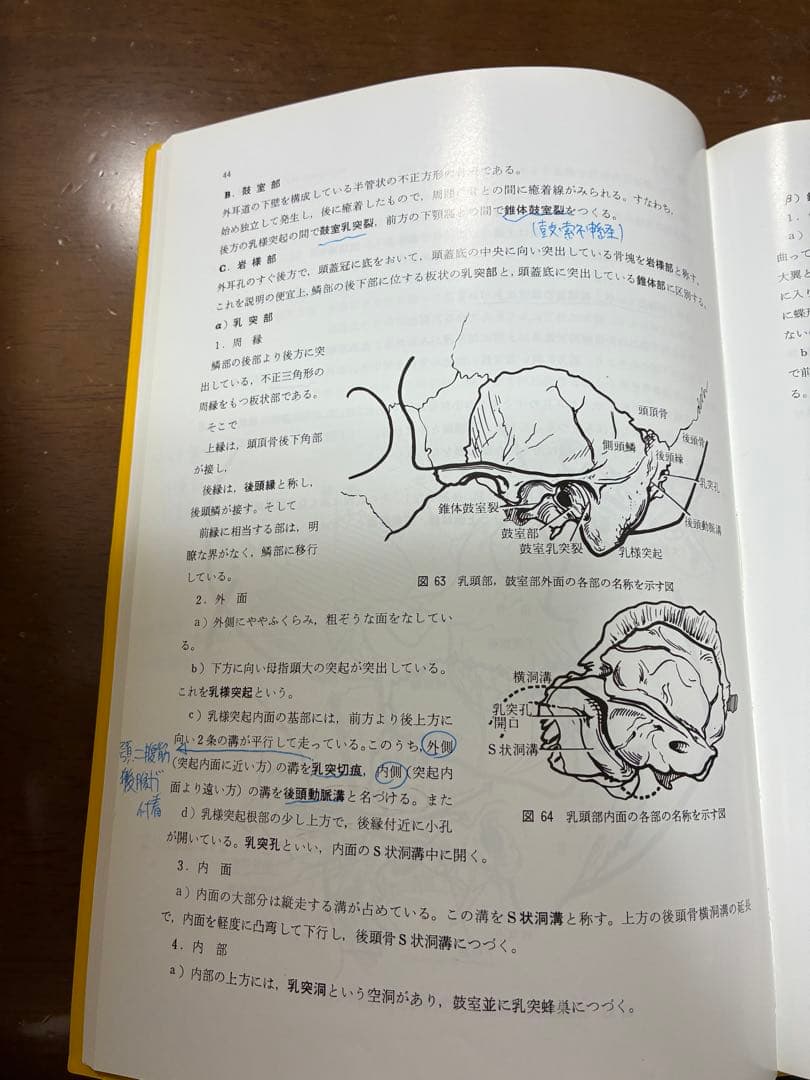 44
B．鼓室部
外耳道の下壁を構成している半管状の不正方形の である。
始め独立して発生し，後に癒着したもので，周囲 との間に癒着線がみられる。すなわち，
後方の乳様突起の間で鼓室乳突裂，前方の下顎窩との間で錐体鼓室裂をつくる。
C．岩様部
外耳孔のすぐ後方で，頭蓋冠に底をおいて，頭蓋底の中央に向い突出している骨塊を岩様部と称す。
これを説明の便宜上，鱗部の後下部に位する板状の乳突部と，頭蓋底に突出している錐体部に区別する。
α）乳突部
1．周縁
鱗部の後部より後方に突
出している，不正三角形の
周縁をもつ板状部である。
そこで
上縁は，頭頂骨後下角部
が接し，
後縁は，後頭縁と称し，
後頭鱗が接す。そして
前縁に相当する部は，明
瞭な界がなく，鱗部に移行
している。
頭頂骨
後頭骨
側頭鱗
後頭縁
乳突孔
錐体鼓室裂
後頭動脈溝
鼓室部
鼓室乳突裂
乳様突起
図 63 乳頭部，鼓室部外面の各部の名称を示す図
2．外面
a）外側にややふくらみ，粗ぞうな面をなしてい
る。
b）下方に向い母指頭大の突起が突出している。
これを乳様突起という。
c）乳様突起内面の基部には，前方より後上方に
向い2条の溝が平行して走っている。このうち，外側
(突起内面に近い方）の溝を乳突切痕，内側（突起内
面より遠い方）の溝を後頭動脈溝と名づける。また
d）乳様突起根部の少し上方で，後縁付近に小孔
が開いている。乳突孔といい，内面のS状洞溝中に開く。
横洞溝
乳突孔
開口
S状洞溝
図 64 乳頭部内面の各部の名称を示す図
3．内面
a）内面の大部分は縦走する溝が占めている。この溝をS状洞溝と称す。上方の後頭骨横洞溝の延長
で，内面を軽度に凸弯して下行し，後頭骨S状洞溝につづく。
4．内部
a）内部の上方には，乳突洞という空洞があり，鼓室並に乳突蜂巣につづく。
β）
a）
曲って
大翼と
に入り
に蝶形
ない
b
で前
る。